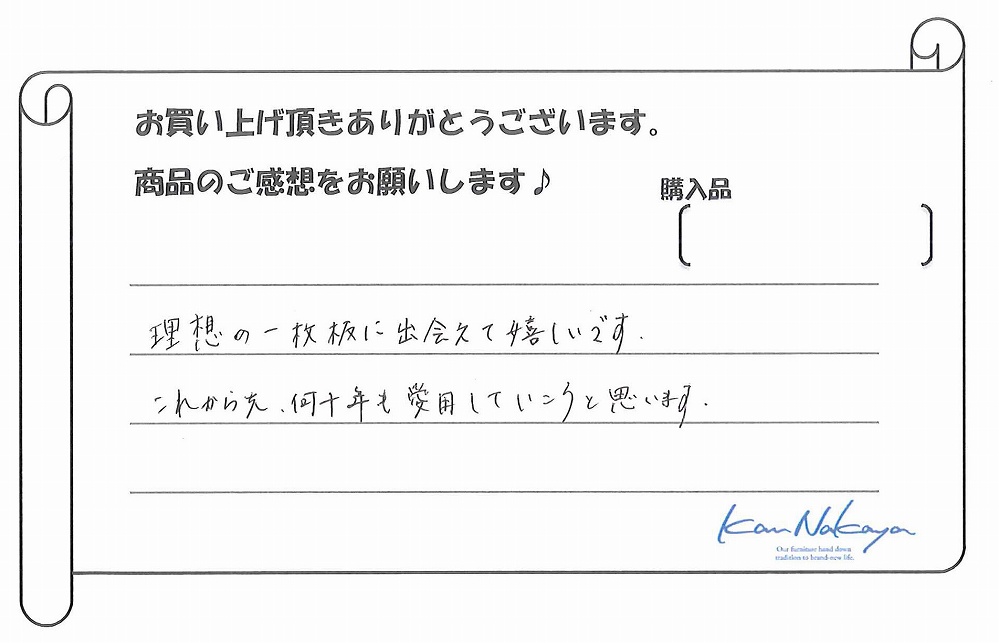 お買い上げ頂きありがとうございます。
商品のご感想をお願いします♪
購入品
理想の一枚板に出会えて嬉しいです.
これから先、何十年も愛用していこうと思います.
Kan Nakaya
Our furniture hand down
tradition to brand-new life.